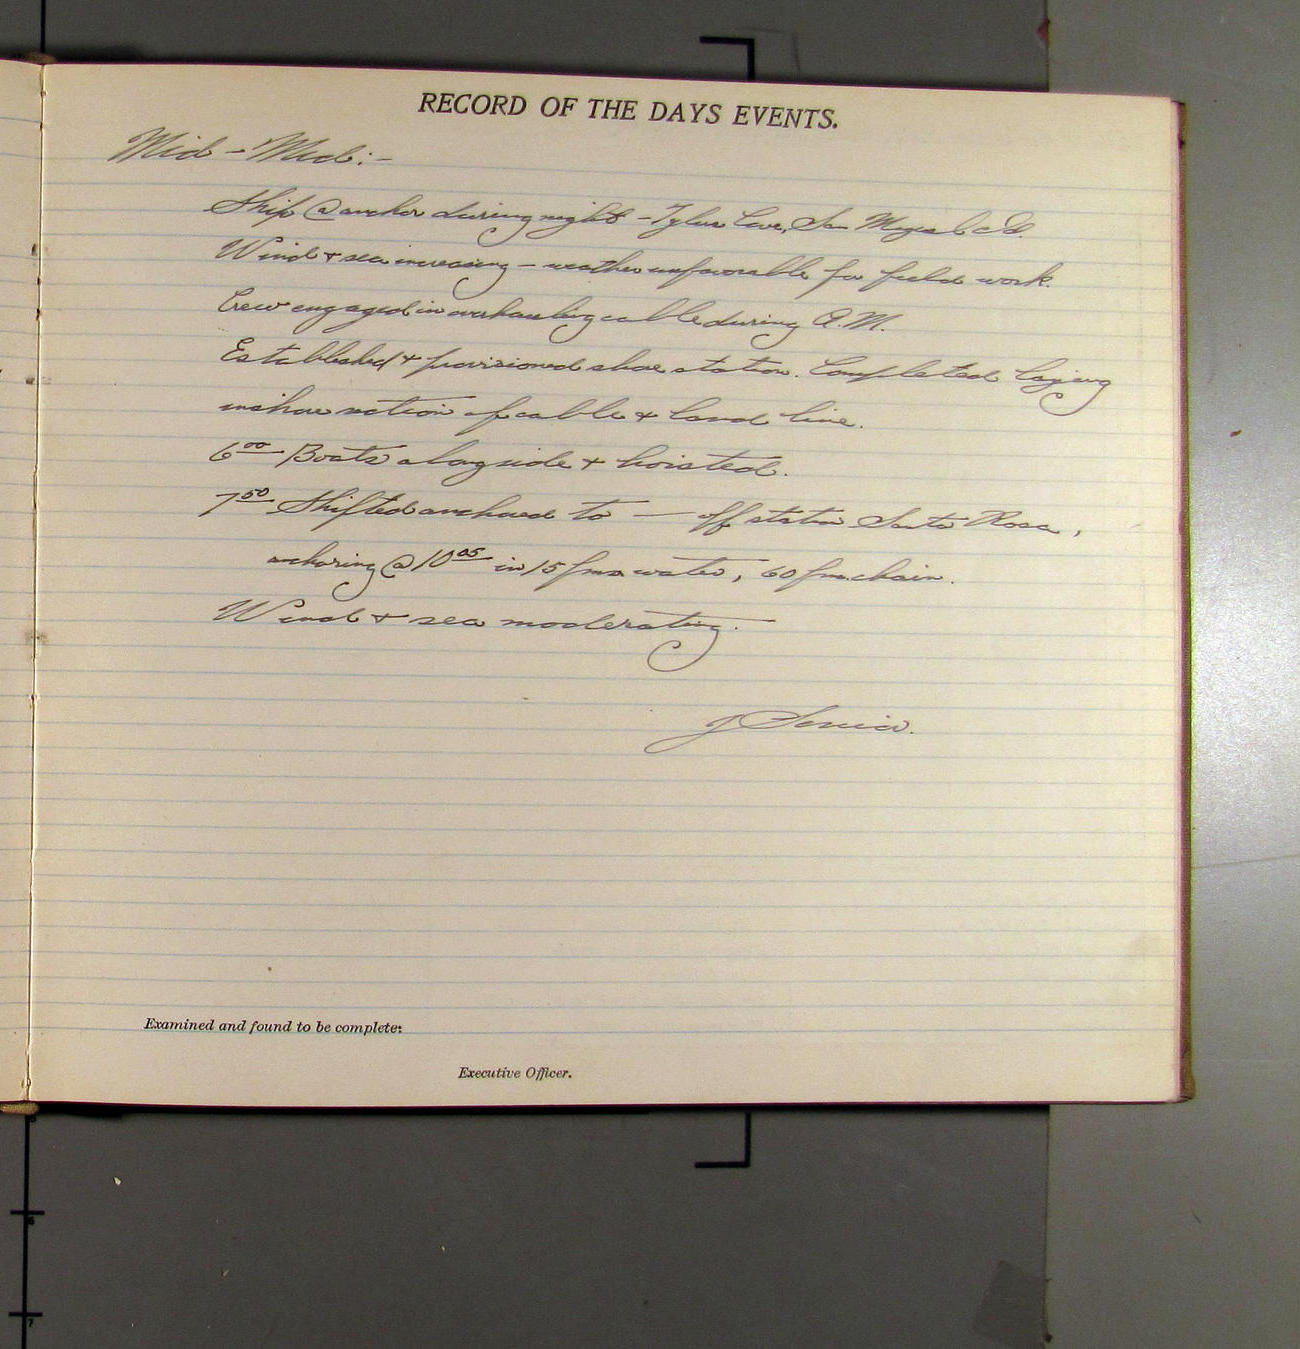 RECORD OF THE DAYS EVENTS.
Mid - Mid:-
Ship @ anchor during night - Tylers Cove, San Miguel Id.
Wind & sea increasing - weather unfavorable for field work.
Crew engaged in overhauling cable during A.M.
Established & provisioned shore station. Completed laying
inshore section of cable & land line.
6 00 Boats alongside & hoisted.
7 50 Shifted anchored to — off station Santa Rosa,
anchoring @ 10 05 in 15 fms water, 60 fm. chain.
Wind & sea moderating.
J Senior.
Examined and found to be complete:
Executive Officer.
6
7